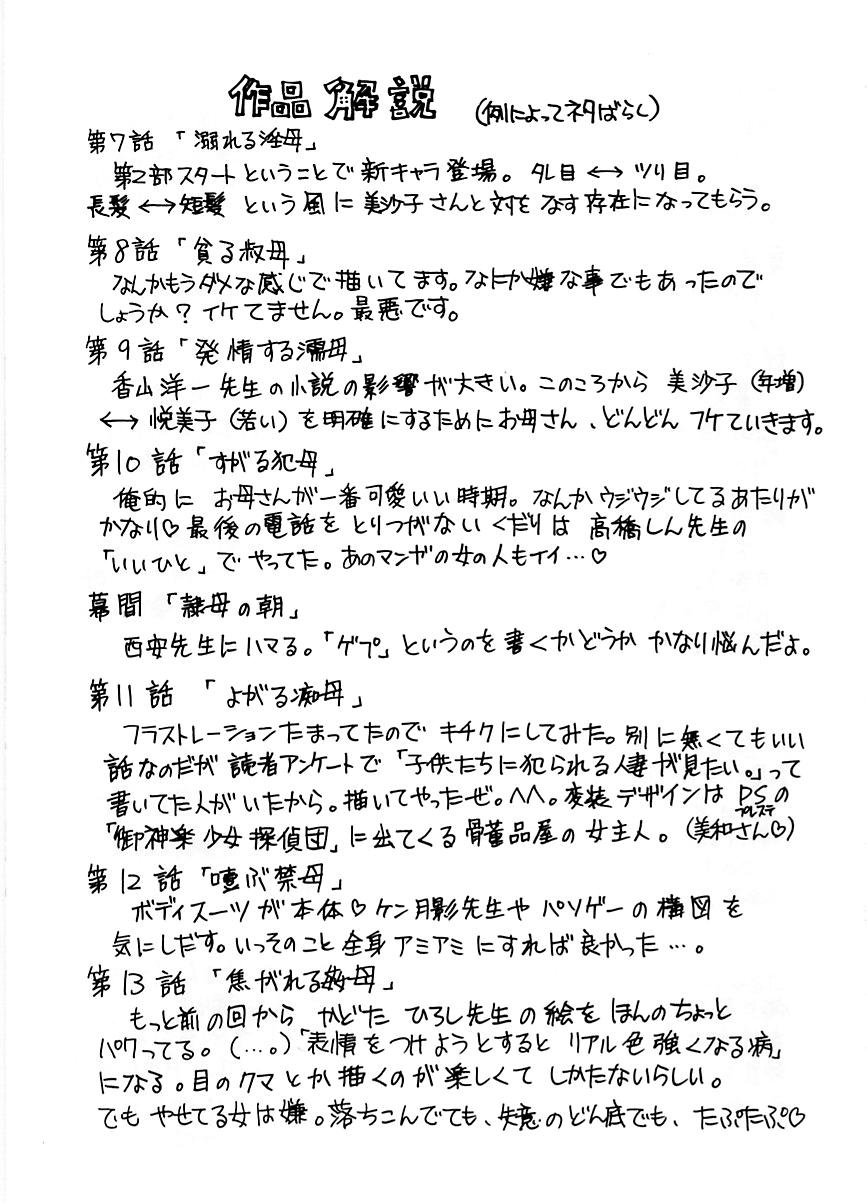 作品解説 (例によってネタばらし)
第7話 「溺れる淫母」
第2部スタートということで新キャラ登場。 タレ目 ←→ ツリ目。
長髪 ←→ 短髪 という風に美沙子さんと対をなす存在になってもらう。
第8話 「貪る叔母」
なんかもうダメな感じで描いてます。なにか嫌な事でもあったので
しょうか? イケてません。最悪です。
第9話 「発情する濡母」
香山洋一先生の小説の影響が大きい。このころから 美沙子 (年増)
←→ 悦美子 (若い) を明確にするためにお母さん、どんどん フケていきます。
第10話 「すがる犯母」
俺的に お母さんが一番可愛いい時期。なんかウジウジしてるあたりが
かなり♡ 最後の電話を とりつがない くだりは 高橋しん先生の
「いいひと」で やってた。あのマンガの女の人もイイ…♡
幕間 「隷母の朝」
西安先生にハマる。「ゲプ」というのを書くかどうか かなり悩んだよ。
第11話 「よがる痴母」
フラストレーションたまってたので キチクにしてみた。別に無くてもいい
話なのだが 読者アンケートで「子供たちに犯られる人妻が見たい。」って
書いてた人がいたから。描いてやったぜ。ハハ。変装デザインは PSの
プレステ
「御神楽少女探偵団」に出てくる骨董品屋の女主人。(美和さん♡)
第12話 「噎ぶ禁母」
ボディスーツが本体♡ ケン月影先生や パソゲーの構図を
気にしだす。いっそのこと 全身アミアミにすれば良かった…。
第13話 「焦がれる母」
もっと前の回から かどた ひろし先生の絵を ほんのちょっと
パクってる。(…。)「表情をつけようとすると リアル色強くなる病」
になる。目のクマとか描くのが楽しくて しかたないらしい。
でも やせてる女は嫌。落ちこんでても、失意のどん底でも、たぷたぷ♡